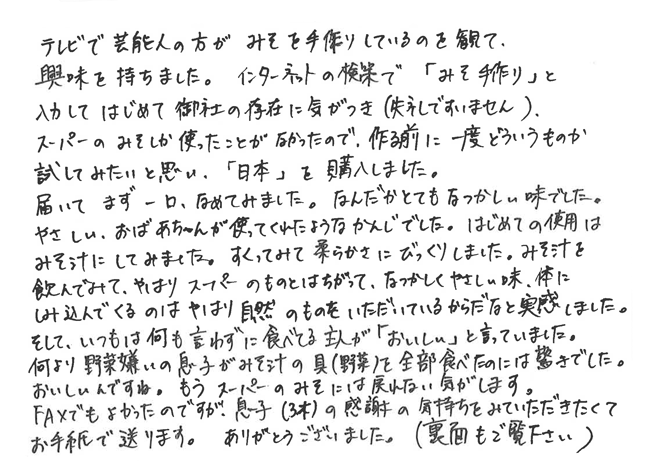 テレビで芸能人の方が みそを手作りしているのを観て、
興味を持ちました。 インターネットの検索で 「みそ 手作り」と
入力して はじめて 御社の存在に気がつき(失礼ですいません)、
スーパーの みそしか 使ったことが なかったので、作る前に 一度どういうものか
試してみたいと思い、「日本」を購入しました。
届いて まず一口、なめてみました。なんだかとてもなつかしい味でした。
やさしい、おばあちゃんが使ってくれたようなかんじでした。はじめての使用は
みそ汁にしてみました。すくってみて柔らかさにびっくりしました。みそ汁を
飲んでみて、やはり スーパーのものとはちがって、なつかしくやさしい味、体に
しみ込んでくるのはやはり自然のものをいただいているからだなと実感しました。
そして、いつもは何も言わずに食べてる主人が「おいしい」と言っていました。
何より野菜嫌いの息子がみそ汁の具(野菜)を全部食べたのには驚きでした。
おいしいんですね。もう スーパーのみそには戻れない気がします。
FAXでもよかったのですが、息子(3才)の感謝の気持ちをみていただきたくて
お手紙で送ります。 ありがとうございました。(裏面もご覧下さい)